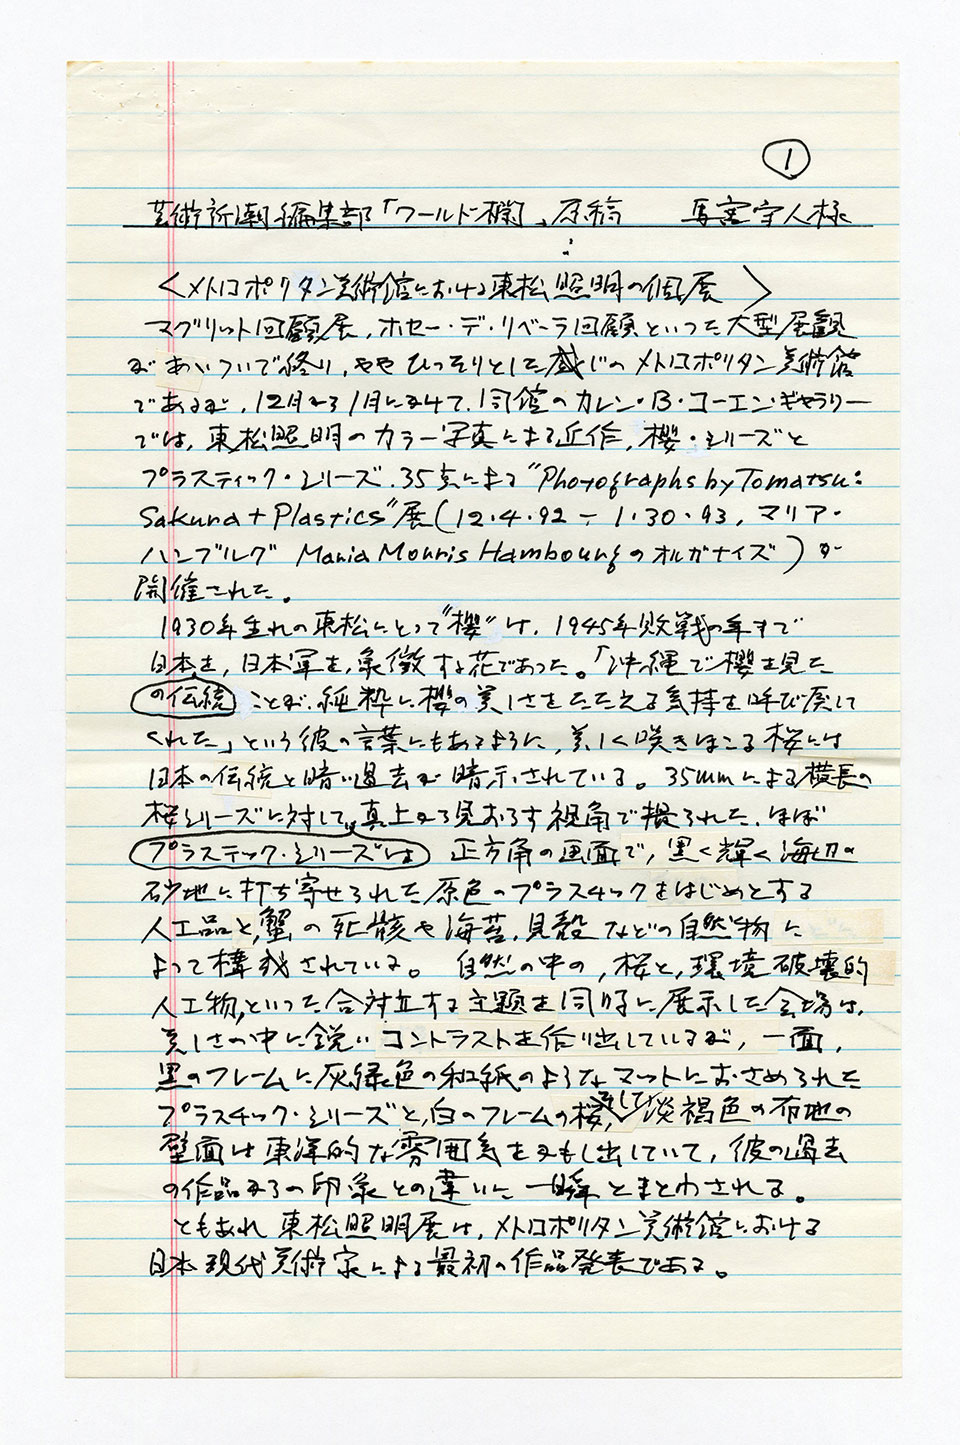 1
芸術新潮編集部「ワールド欄」原稿 馬宮守人様
<メトロポリタン美術館における東松照明の個展>
マグリット回顧展、ホセー・デ・リベーラ回顧といった大型展観
があいついで終り、ややひっそりとした感じのメトロポリタン美術館
であるが、12月から1月にかけて、同館のカレン・B・コーエン・ギャラリー
では、東松照明のカラー写真による近作、櫻・シリーズと
プラスティック・シリーズ、35点による"Photographs by Tomatsu:
Sakura + Plastics"展(12・4・92 – 1・30・93、マリア・
ハンブルグ Maria Morris Hambourgのオルガナイズ)が
開催された。
1930年生れの東松にとって"櫻"は、1945年敗戦の年まで
日本を、日本軍を、象徴する花であった。「沖縄で櫻を見た
の伝統
ことが、純粋に櫻の美しさをたたえる気持を呼び戻して
くれた」という彼の言葉にもあるように、美しく咲きほこる桜には
日本の伝統と暗い過去が暗示されている。35mmによる横長の
桜シリーズに対して、真上から見おろす視角で撮られた、ほぼ
プラスチック・シリーズは 正方角の画面で、黒く輝く海辺の
砂地に打ち寄せられた原色のプラスチックをはじめとする
人工品と、蟹の死骸や海苔、貝殻などの自然物に
よって構成されている。 自然の中の、桜と、環境破壊的
人工物、といった合対立する主題を同時に展示した会場は、
美しさの中に鋭いコントラストを作り出しているが、一面、
黒のフレームに灰緑色の和紙のようなマットにおさめられた
プラスチック・シリーズと、白のフレームの桜、そして、淡褐色の布地の
壁面は東洋的な雰囲気をかもし出していて、彼の過去
の作品からの印象との違いに一瞬とまどわされる。
ともあれ東松照明展は、メトロポリタン美術館における
日本現代美術家による最初の作品発表である。